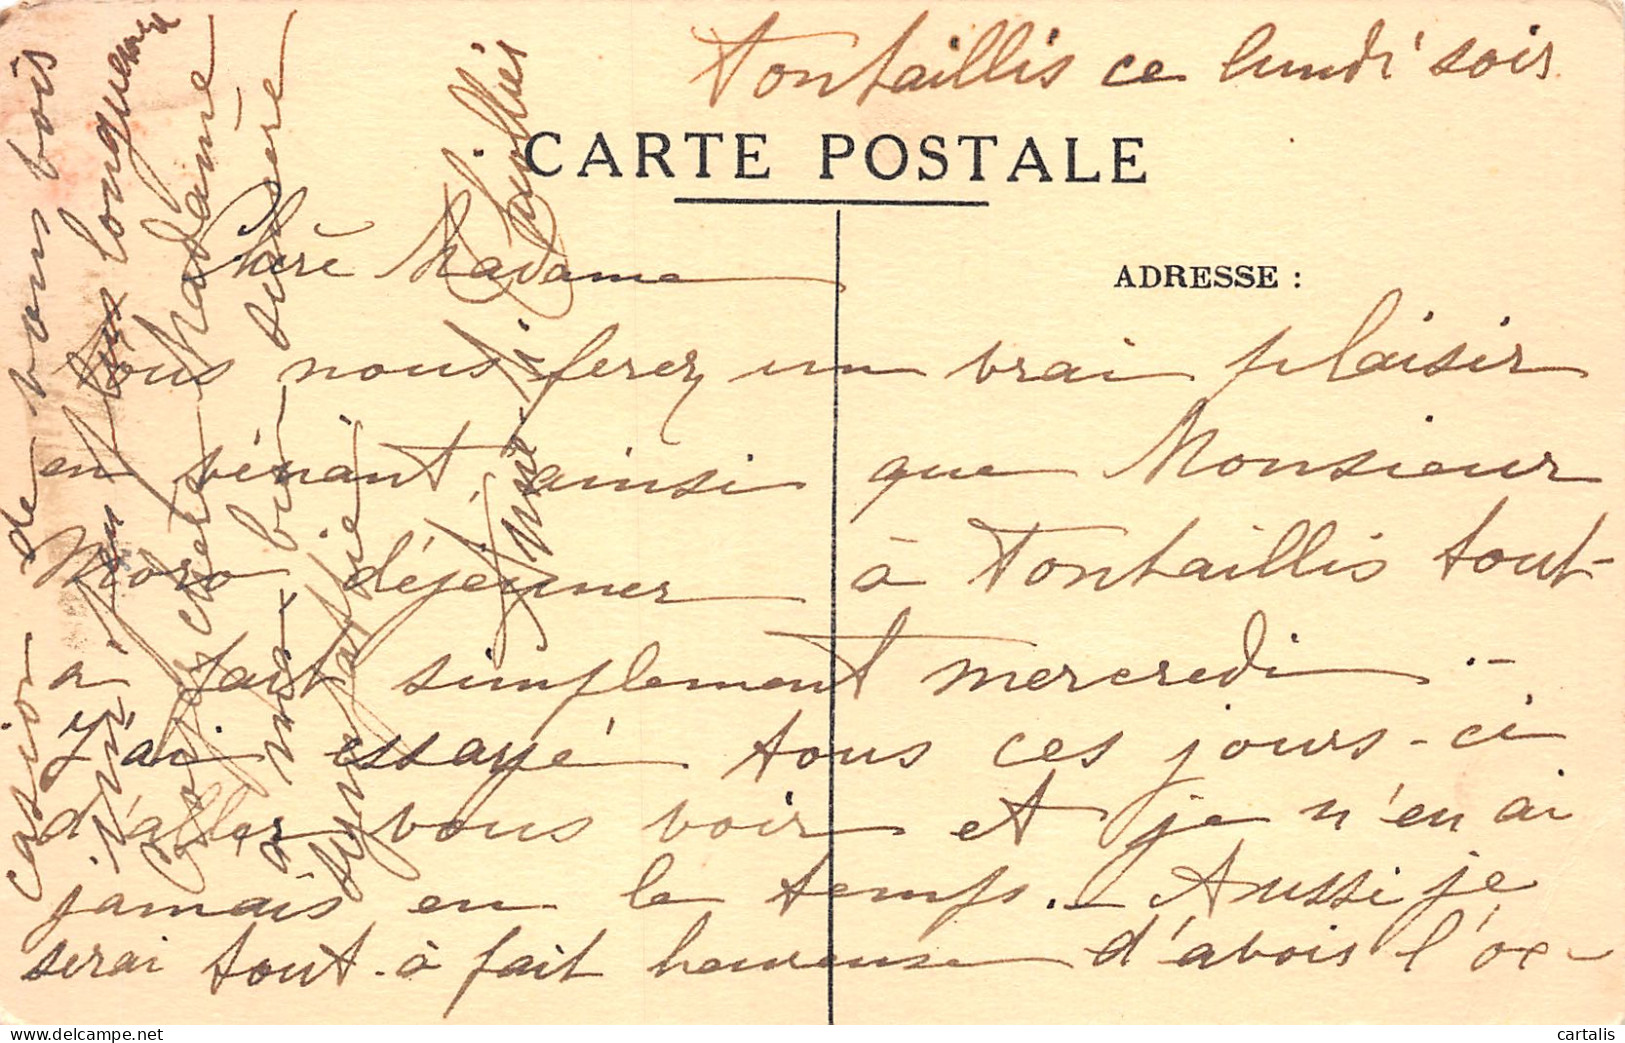 Tontaillis ce lundi soir
CARTE POSTALE
ADRESSE :
Chère Madame
Vous nous ferez un vrai plaisir
en venant, ainsi que Monsieur
Moro déjeuner à Tontaillis tout-
à fait simplement mercredi .-
J'ai essayé tous ces jours-ci
d'aller vous voir et je n'en ai
jamais en le temps. - Aussi je
serai tout-à fait heureuse d'avoir l'oc-
casion de vous voir
un peu plus longuement
Croyez chère Madame
à ma bien sincère
sympathie
cartalis
www.delcampe.net